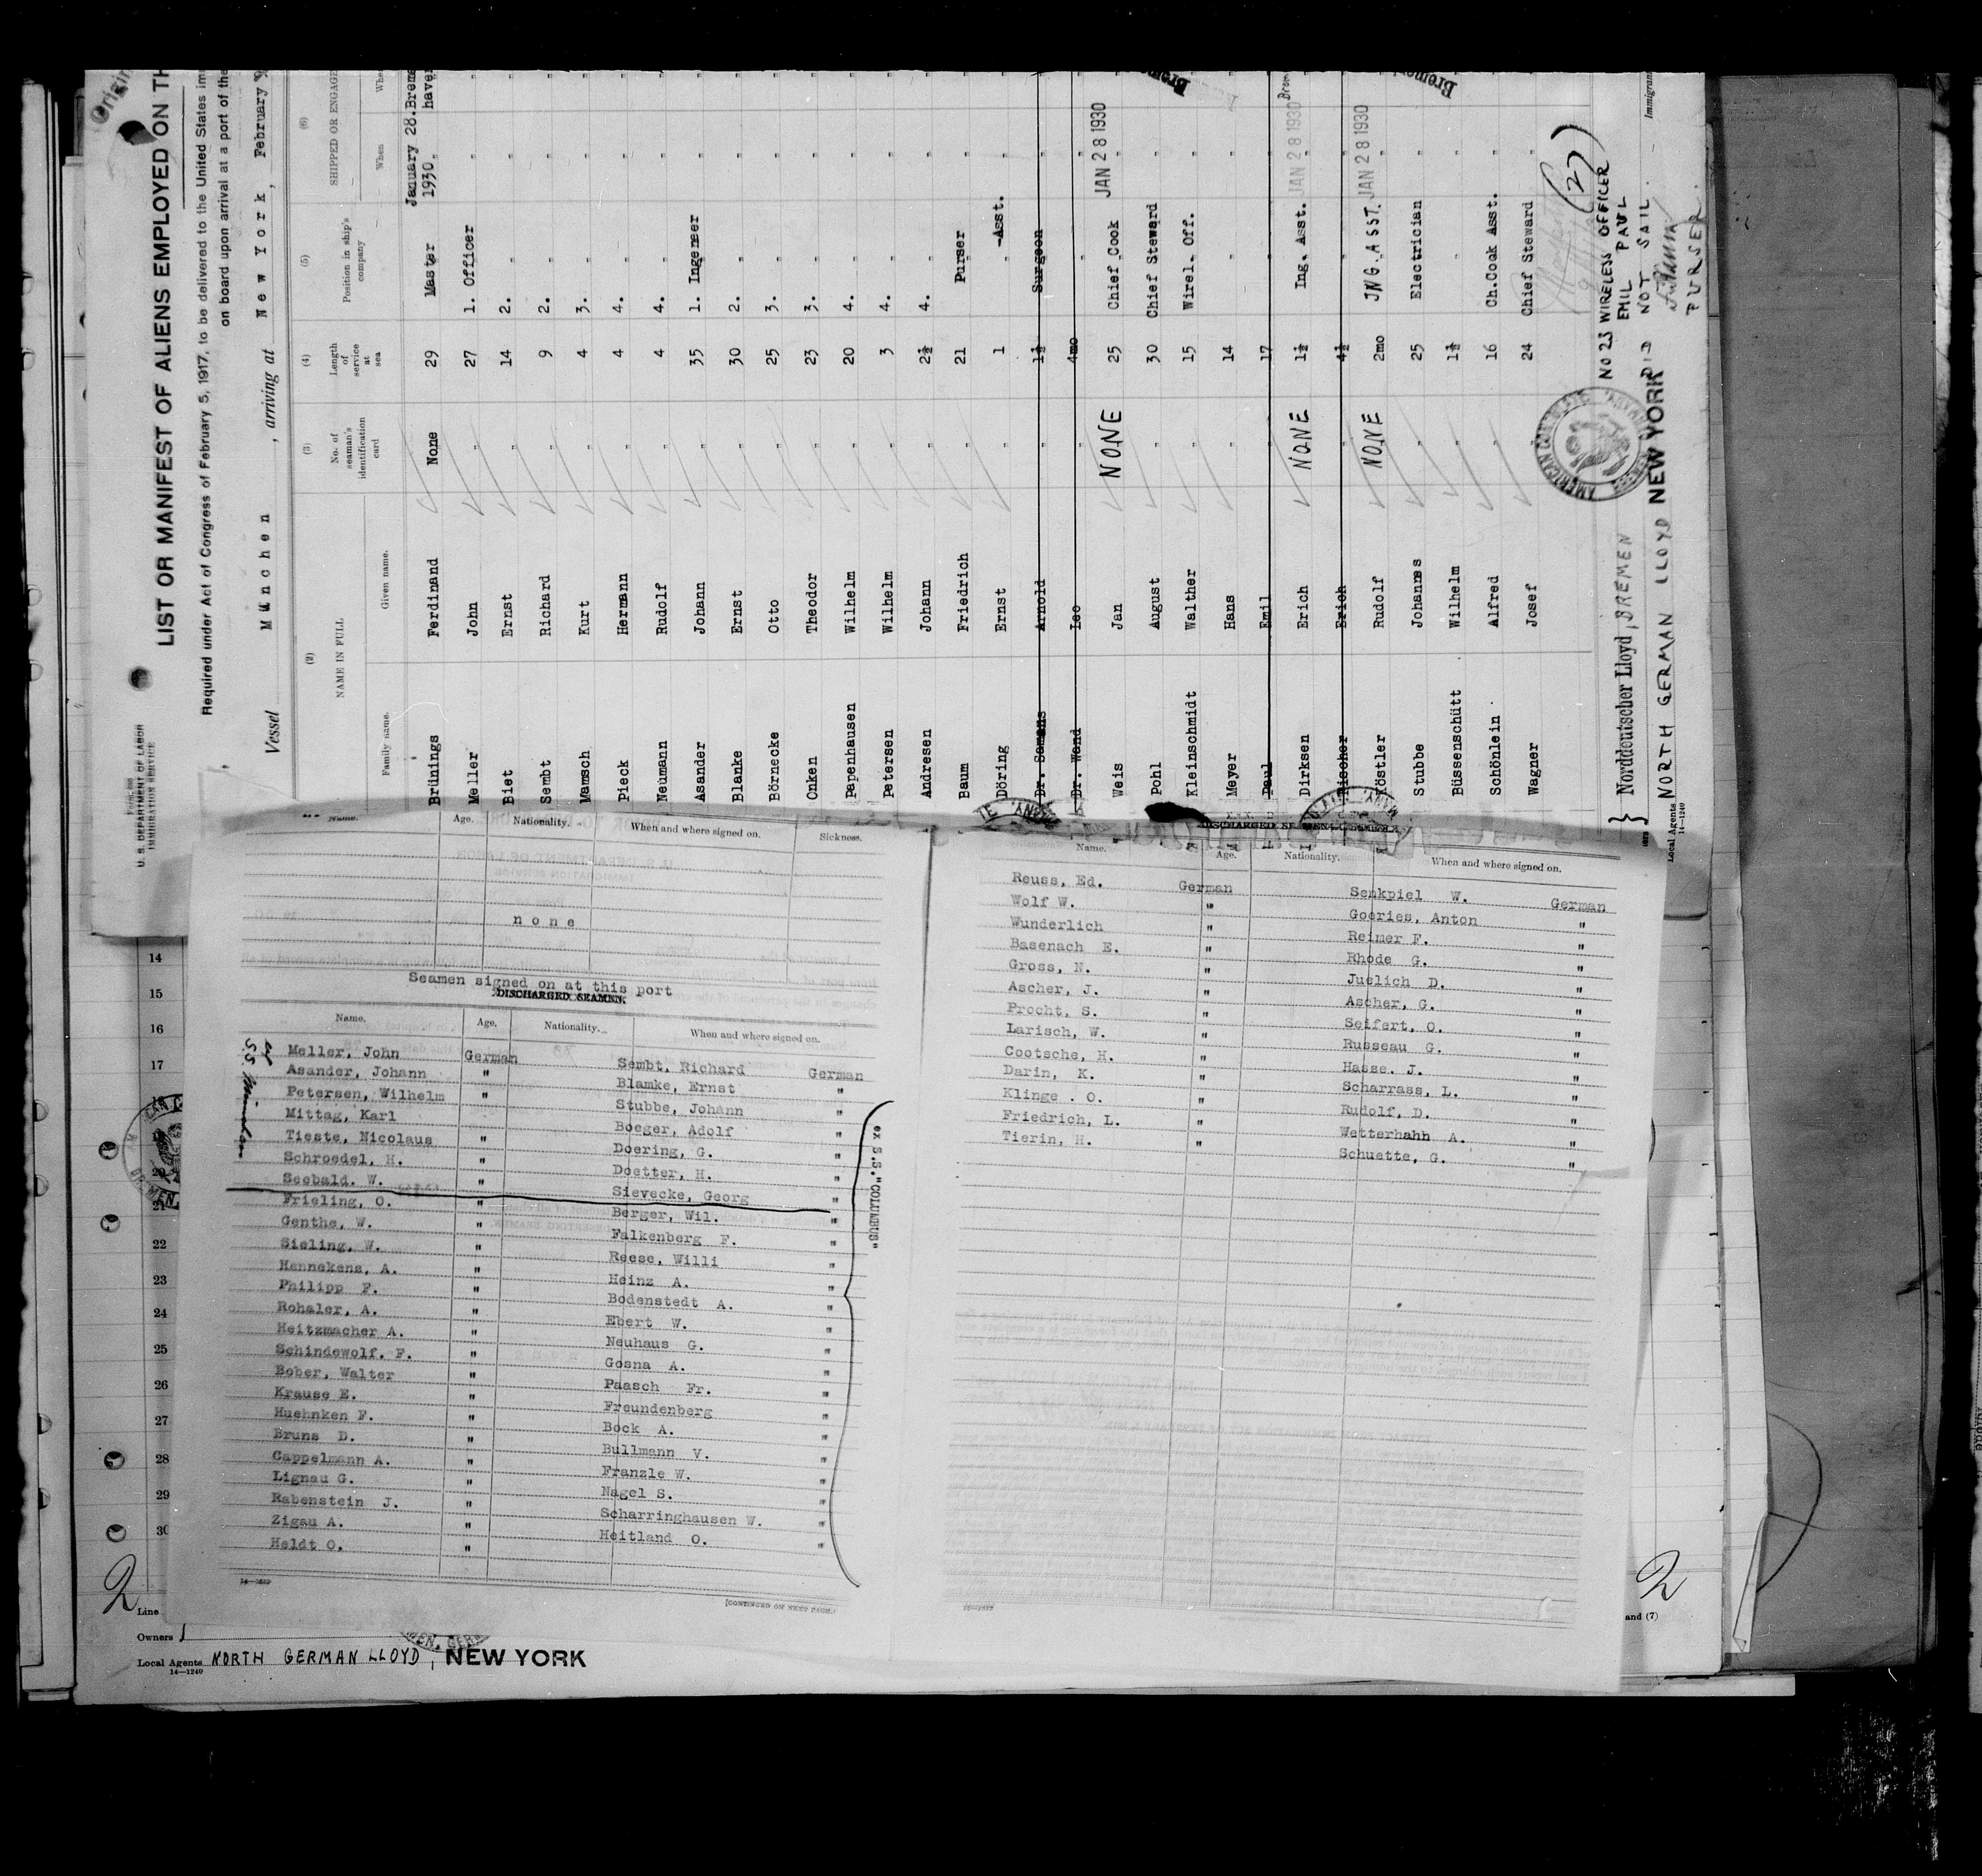 Origin
U. S. DEPARTMENT OF LABOR
IMMIGRATION SERVICE
LIST OR MANIFEST OF ALIENS EMPLOYED ON TH
Required under Act of Congress of February 5, 1917, to be delivered to the United States imm
on board upon arrival at a port of the
Vessel München , arriving at New York, February 9
(2) (3) (4) (5) (6)
NAME IN FULL No. of seaman's identification card Length of service at sea Position in ship's company SHIPPED OR ENGAGE
Family name. Given name. When Whe
Brünings Ferdinand None 29 Master January 28. 1930 Breme haven
Meller John " 27 1. Officer " "
Biet Ernst " 14 2. " " "
Sembt Richard " 9 2. " " "
Mamsch Kurt " 4 3. " " "
Pieck Hermann " 4 4. " " "
Neumann Rudolf " 4 4. " " "
Asander Johann " 35 1. Ingeneer " "
Blanke Ernst " 30 2. " " "
Börnecke Otto " 25 3. " " "
Onken Theodor " 23 3. " " "
Papenhausen Wilhelm " 20 4. " " "
Petersen Wilhelm " 3 4. " " "
Andresen Johann " 2½ 4. " " "
Baum Friedrich " 21 Purser " "
Döring Ernst " 1 " -Asst. " "
Dr. Arnold " 1½ Surgeon " "
Dr. Wand Leo " 4mo " " "
Weis Jan NONE 25 Chief Cook JAN 28 1930
Pohl August " 30 Chief Steward " "
Kleinschmidt Walther " 15 Wirel. Off. " "
Meyer Hans " 14 " "
Paul Emil " 17 " "
Dirksen Erich NONE 1½ Ing. Asst. JAN 28 1930 Brem
Fischer Erich " 4½ " "
Köstler Rudolf NONE 2mo JNG. ASST. JAN 28 1930
Stubbe Johannes " 25 Electrician " "
Büssenschütt Wilhelm " 1½ " "
Schönlein Alfred " 16 Ch.Cook Asst. " "
Wagner Josef 24 Chief Steward
(27)
NO 23 WIRELESS OFFICER
EMIL PAUL
DID NOT SAIL
PURSER
AMERICAN CONSULATE
Norddeutscher Lloyd, BREMEN
Local Agents NORTH GERMAN LLOYD NEW YORK
14-1240
Immigrant
Name. Age. Nationality. When and where signed on. Sickness.
none
Seamen signed on at this port
DISCHARGED SEAMEN.
Name. Age. Nationality. When and where signed on.
ex S.S. München
Meller, John German Sembt, Richard German
Asander, Johann " Blamke, Ernst "
Petersen, Wilhelm " Stubbe, Johann "
Mittag, Karl Boeger, Adolf "
Tieste, Nicolaus " Doering, G. "
Schroedel, H. " Doetter, H. "
Seebald. W. " Sievecke, Georg "
Frieling, O. " Berger, Wil. "
Genthe, W. Falkenberg F. "
Sieling, W. " Reese, Willi "
Hennekens, A. " Heinz A. "
Philipp F. " Bodenstedt A. "
Rohaler, A. " Ebert W. "
Heitzmacher A. " Neuhaus G. "
Schindewolf. F. " Gosna A. "
Bober, Walter " Paasch Fr. "
Krause E. " Freundenberg "
Huehnken F. " Bock A. "
Bruns D. " Bullmann V. "
Cappelmann A. " Franzle W. "
Lignau G. " Nagel S. "
Rabenstein J. " Scharringhausen W. "
Zigau A. " Heitland O. "
Heldt O. "
ex S.S. "COLUMBUS"
[CONTINUED ON NEXT PAGE.]
DISCHARGED SEAMEN
Name. Age. Nationality. When and where signed on.
Reuss, Ed. German Senkpiel W. German
Wolf W. " Goeries, Anton "
Wunderlich " Reimer F. "
Basenach E. " Rhode G. "
Gross, N. " Juelich D. "
Ascher, J. " Ascher, G. "
Procht, S. " Seifert, O. "
Larisch, W. " Russeau G. "
Cootsche, H. " Hasse. J. "
Darin, K. " Scharrass, L. "
Klinge . O. " Rudolf, D. "
Friedrich, L. " Wetterhahn A. "
Tierin, H. " Schuette, G. "
14
15
16
17
20
21
22
23
24
25
26
27
28
29
30
2
2
Line
and (7)
Owners
Local Agents NORTH GERMAN LLOYD, NEW YORK
14-1240